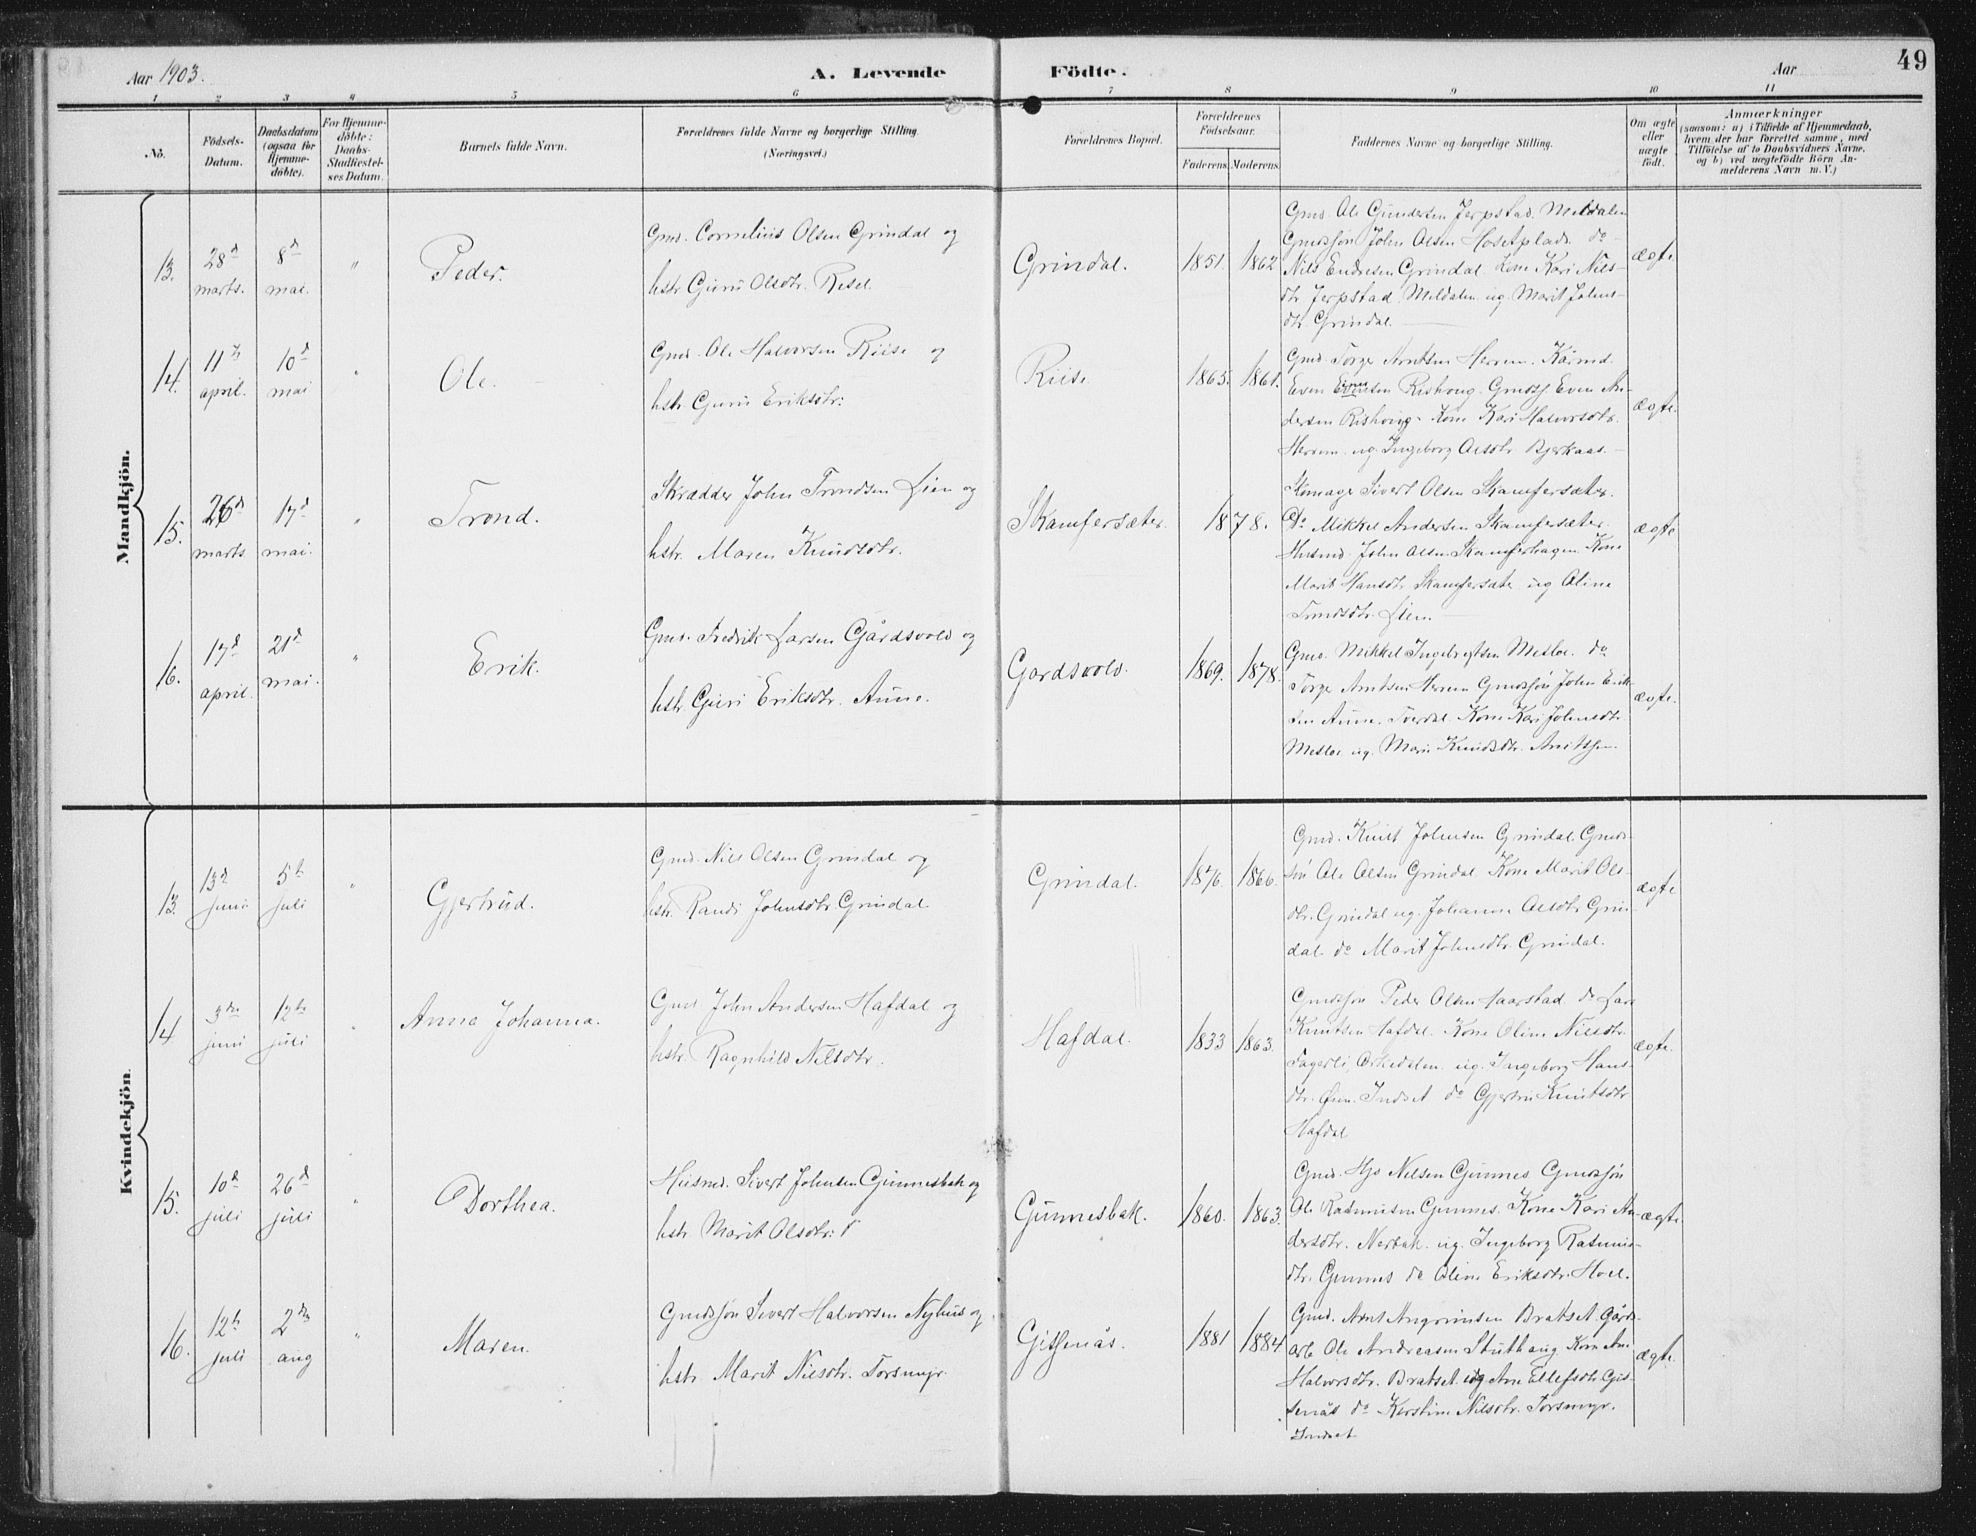 Aar 1903.
A. Levende
Födte.
Aar
49
1 2 3 4 5 6 7 8 9 10 11
No.
Födsels-Datum.
Daabsdatum (ogsaa for Hjemme-döbte).
For Hjemme-döbte: Daabs-Stadfæstel-ses Datum.
Barnets fulde Navn.
Forældrenes fulde Navne og borgerlige Stilling. (Næringsvei.)
Forældrenes Bopæl.
Forældrenes Födselsaar.
Faderens. Moderens.
Faddernes Navne og borgerlige Stilling.
Om ægte eller uægte födt.
Anmærkninger
(saasom: a) i Tilfælde af Hjemmedaab,
hvem der har forrettet samme, med
Tilföielse af to Daabsvidners Navne,
og b) ved uægtefödte Börn An-
melderens Navn m.V.)
Mandkjön.
13. 28d marts. 8d mai. " Peder.
Gmd. Cornelius Olsen Grindal og
hstr Guru Olsdtr. Resel
Grindal. 1851. 1862
Gmd. Ole Gundersen Jerpstad. Meldalen
Gmdsjøn John Olsen Hosetplads. do
Nils Endresen Grindal. Kone Kari Nils-
dtr. Jerpstad. Meldalen ug. Marit Johns-
dtr. Grindal.
ægte.
14. 11te april. 10d mai " Ole.
Gmd. Ole Halvorsen Riise og
hstr Guru Eriksdtr:
Riise 1865. 1861.
Gmd. Torge Arntsen Herrem. Kårmd.
Even Evensen Rishoug. Gmdsj. Even An-
dersen Rishoug. Kone Kari Halvorsdtr.
Herrem. ug. Ingeborg Olsdtr. Bjerkaas.
ægte.
15. 26d marts 17d mai. " Trond.
Skrædder John Trondsen Lien og
hstr. Maren Knudsdtr.
Skamfersæter 1878.
Skomager Sivert Olsen Skamfersæter.
Do Mikkel Andersen Skamfersæter.
Husmd. John Olsen Skamferhagen. Kone
Marit Hansdtr Skamfersæter ug Oline
Trondsdtr. Lien
ægte
16. 17d april. 21d mai. " Erik.
Gmd. Fredrik Larsen Gårdsvold og
hstr. Guri Eriksdtr. Aune.
Gardsvold. 1869. 1878.
Gmd. Mikkel Ingebrigtsen Mesloe. do
Torge Arntsen Herrem Gmdsjøn John Erik-
sen Aune. Tverdal. Kone Kari Johnsdtr.
Mesloe ug. Marit Knudsdtr.
ægte.
Kvindekjön.
13. 13d juni 5te juli " Gjertrud.
Gmd. Nils Olsen Grindal og
hstr. Randi Johnsdtr. Grindal
Grindal. 1876. 1866.
Gmd. Knut Johnsen Grindal. Gmds-
søn Ole Olsen Grindal. Kone Marit Ols-
dtr. Grindal ug. Johanna Olsdtr Grin-
dal. do Marit Johnsdtr. Grindal.
ægte
14 3die juni 12te juli " Anna Johanna.
Gmd. John Andersen Hafdal og
hstr. Ragnhild Nilsdtr.
Hafdal. 1833 1863.
Gmdsjøn Peder Olsen Aarstad. do Lars
Knutsen Hafdal. Kone Oline Nilsdtr.
Fagerli, Orkedalen. ug. Ingeborg Hans-
dtr. Øien. Indset do Gjertru Knutsdtr
Hafdal
ægte.
15. 10d juli 26d juli " Dorthea.
Husmd. Sivert Johnsen Gunnesbak og
hstr Marit Olsdtr:
Gunnesbak. 1860. 1863.
Gmd. Nilsen Gunnes. Gmdsjøn
Ole Rasmusen Gunnes. Kone Kari An-
dersdtr. Nerbak. ug. Ingeborg Rasmus-
dtr. Gunnes do Oline Eriksdtr. Hoel.
ægte.
16. 12te juli 2den aug " Maren.
Gmdsjøn Sivert Halvorsen Nyhus og
hstr Marit Nilsdtr. Torsmyr
Gisnås. 1881 1884
Gmd. Arnt Arngrimsen Bratset. Gårds-
arb. Ole Andreasen Stuthaug Kone Ane
Halvorsdtr. Bratset. ug Ane Ellefsdtr. Gis-
senås do Kerstine Nilsdtr. Torsmyr.
Indset
ægte.